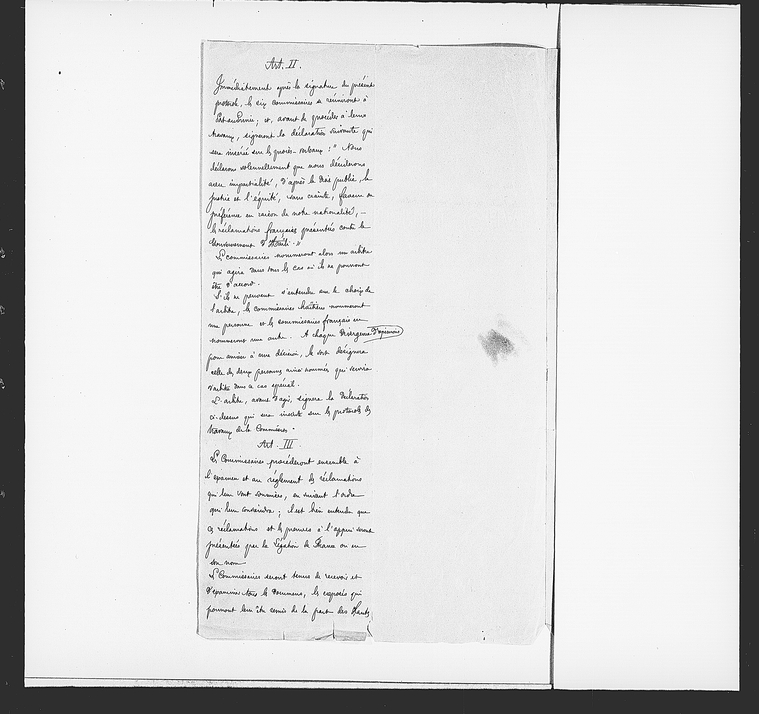 Art. II.
Immédiatement après la signature du présent
protocole, les six commissaires se réuniront à
Port-au-Prince; et, avant de procéder à leurs
travaux, signeront la déclaration suivante qui
sera insérée sur les procès-verbaux : " Nous
déclarons solennellement que nous déciderons
avec impartialité, d'après le Droit public, la
Justice et l'équité, sans crainte, faveur ou
préférence en raison de notre nationalité, –
les réclamations françaises présentées contre le
Gouvernement d'Haïti. "
Les commissaires nommeront alors un arbitre
qui agira dans tous les cas où ils ne pourront
être d'accord.
S'ils ne peuvent s'entendre sur le choix de
l'arbitre, les commissaires haïtiens nommeront
une personne et les commissaires français en
nommeront une autre. A chaque divergence d'opinions
pour arriver à une décision, le sort désignera
celle des deux personnes ainsi nommées qui servira
d'arbitre dans ce cas spécial.
L'arbitre, avant d'agir, signera la déclaration
ci-dessus qui sera inscrite sur les protocoles des
travaux de la Commission.
Art. III
Les Commissaires procéderont ensemble à
l'examen et au règlement des réclamations
qui leur sont soumises, en suivant l'ordre
qui leur conviendra; il est bien entendu que
ces réclamations et les preuves à l'appui seront
présentées par la Légation de France ou en
son nom
Les Commissaires seront tenus de recevoir et
d'examiner tous les documens, les exposés qui
pourront leur être remis de la part des Hautes